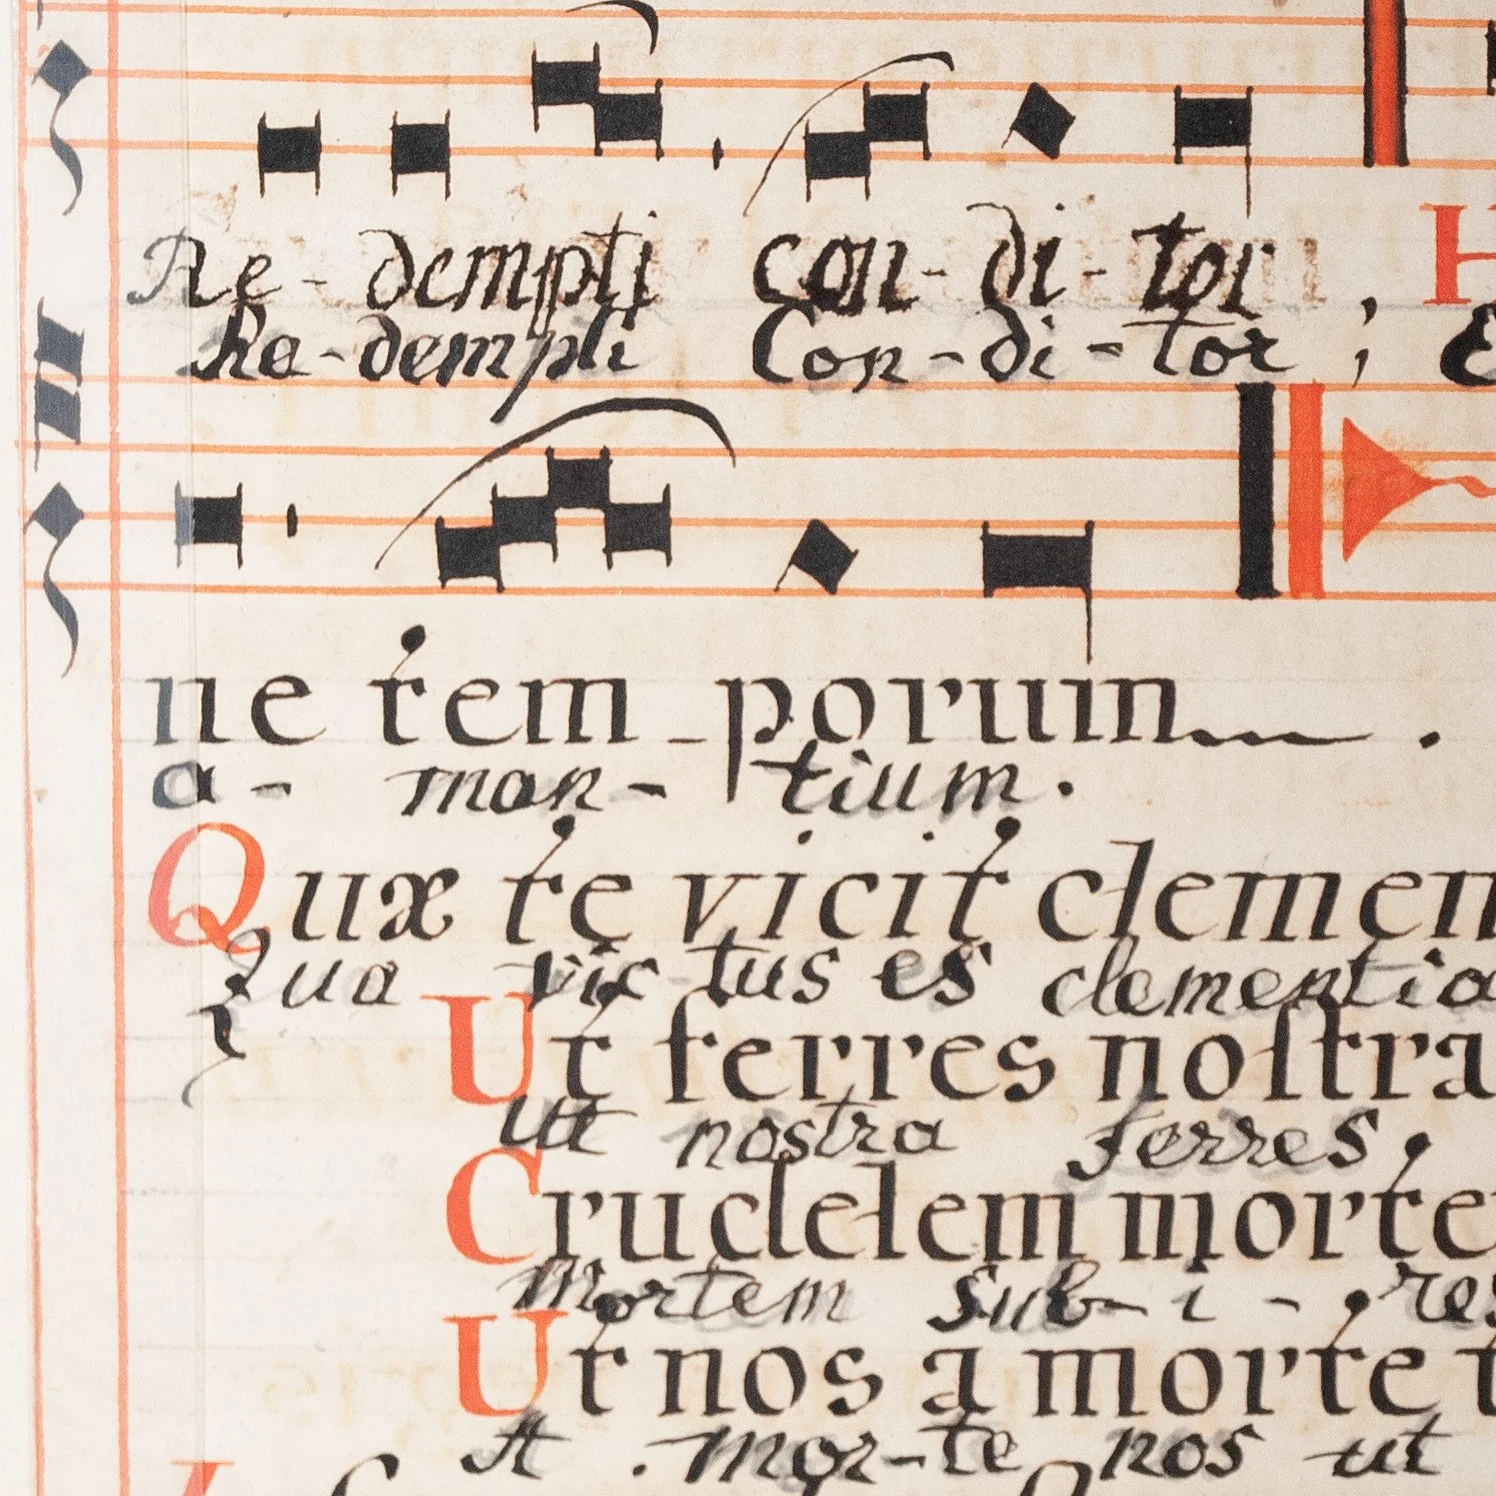 Re - dempti con - di - tor , H
Re - dempti Con - di - tor ; E
ne tem - porum .
a - man - tium .
Quæ te vicit clemen
Qua vic tus es clementia
Ut ferres noſtra
ut nostra ferres .
Crudelem morte
mortem sub - i - res
Ut nos a morte t
A mor - te nos ut